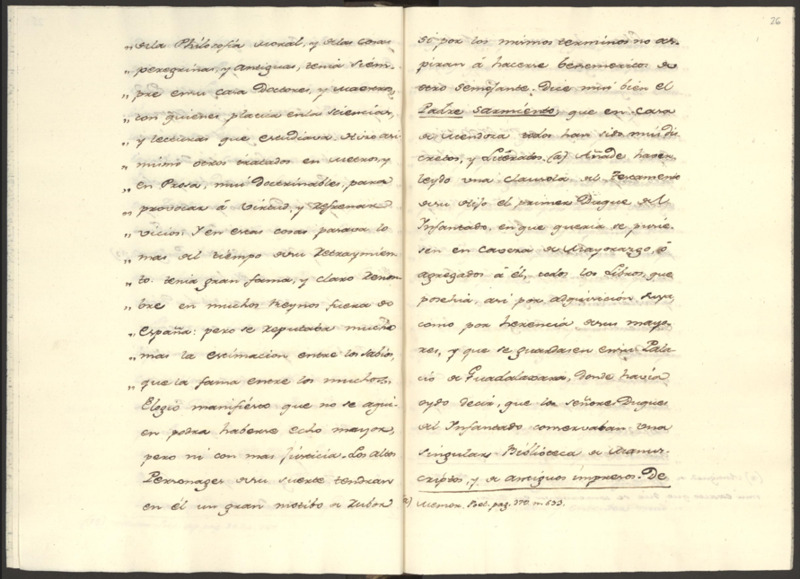 „ de la Philosofia moral, y de las cosas
„ peregrinas, y Antiguas, tenia siem-
„ pre en su casa Doctores, y Maestros,
„ con quienes platica en las sciencias,
„ y lecturas que estudiava. Hizo asi
„ mismo otros tratados en metros, y
„ en Prosa, mui doctrinables, para
„ provocar á virtud, y refrenar
„ vicios. Y en estas cosas pasava lo
„ mas del tiempo de su retraymien-
„ to. tenia gran fama, y claro renom-
„ bre en muchos Reynos fuera de
„ España: pero se reputaba mucho
„ mas la estimacion entre los sabios,
„ que la fama entre los muchos.
Elogio manifiesto que no se a qui-
en podra haberse echo mayor,
pero ni con mas justicia. Los altos
Personages de su suerte tendran
en él un gran motibo de rubor
26
si por los mismos terminos no as-
piran á hacerse benemeritos de
otro semejante. Dice mui bien el
Padre Sarmiento, que en casa
de Mendoza todos han sido mui dis-
cretos, y Literatos. (a) Añade haser
leydo una clausula del Testamento
de su Hijo el primer Duque del
Infantado, en que queria se pusie-
sen en cavera de Mayorazgo, ó
agregados á él, todos los Libros, que
posehia, asi por adquisicion suya,
como por herencia de sus mayo-
res, y que se guardasen en su Pala-
cio de Guadalaxara, donde havia
oydo decir, que los señores Duques
del Infantado conservaban una
singular Biblioteca de Manus-
criptos, y de antiguos impresos. De
a) Memor. Poet. pag. 370. n.